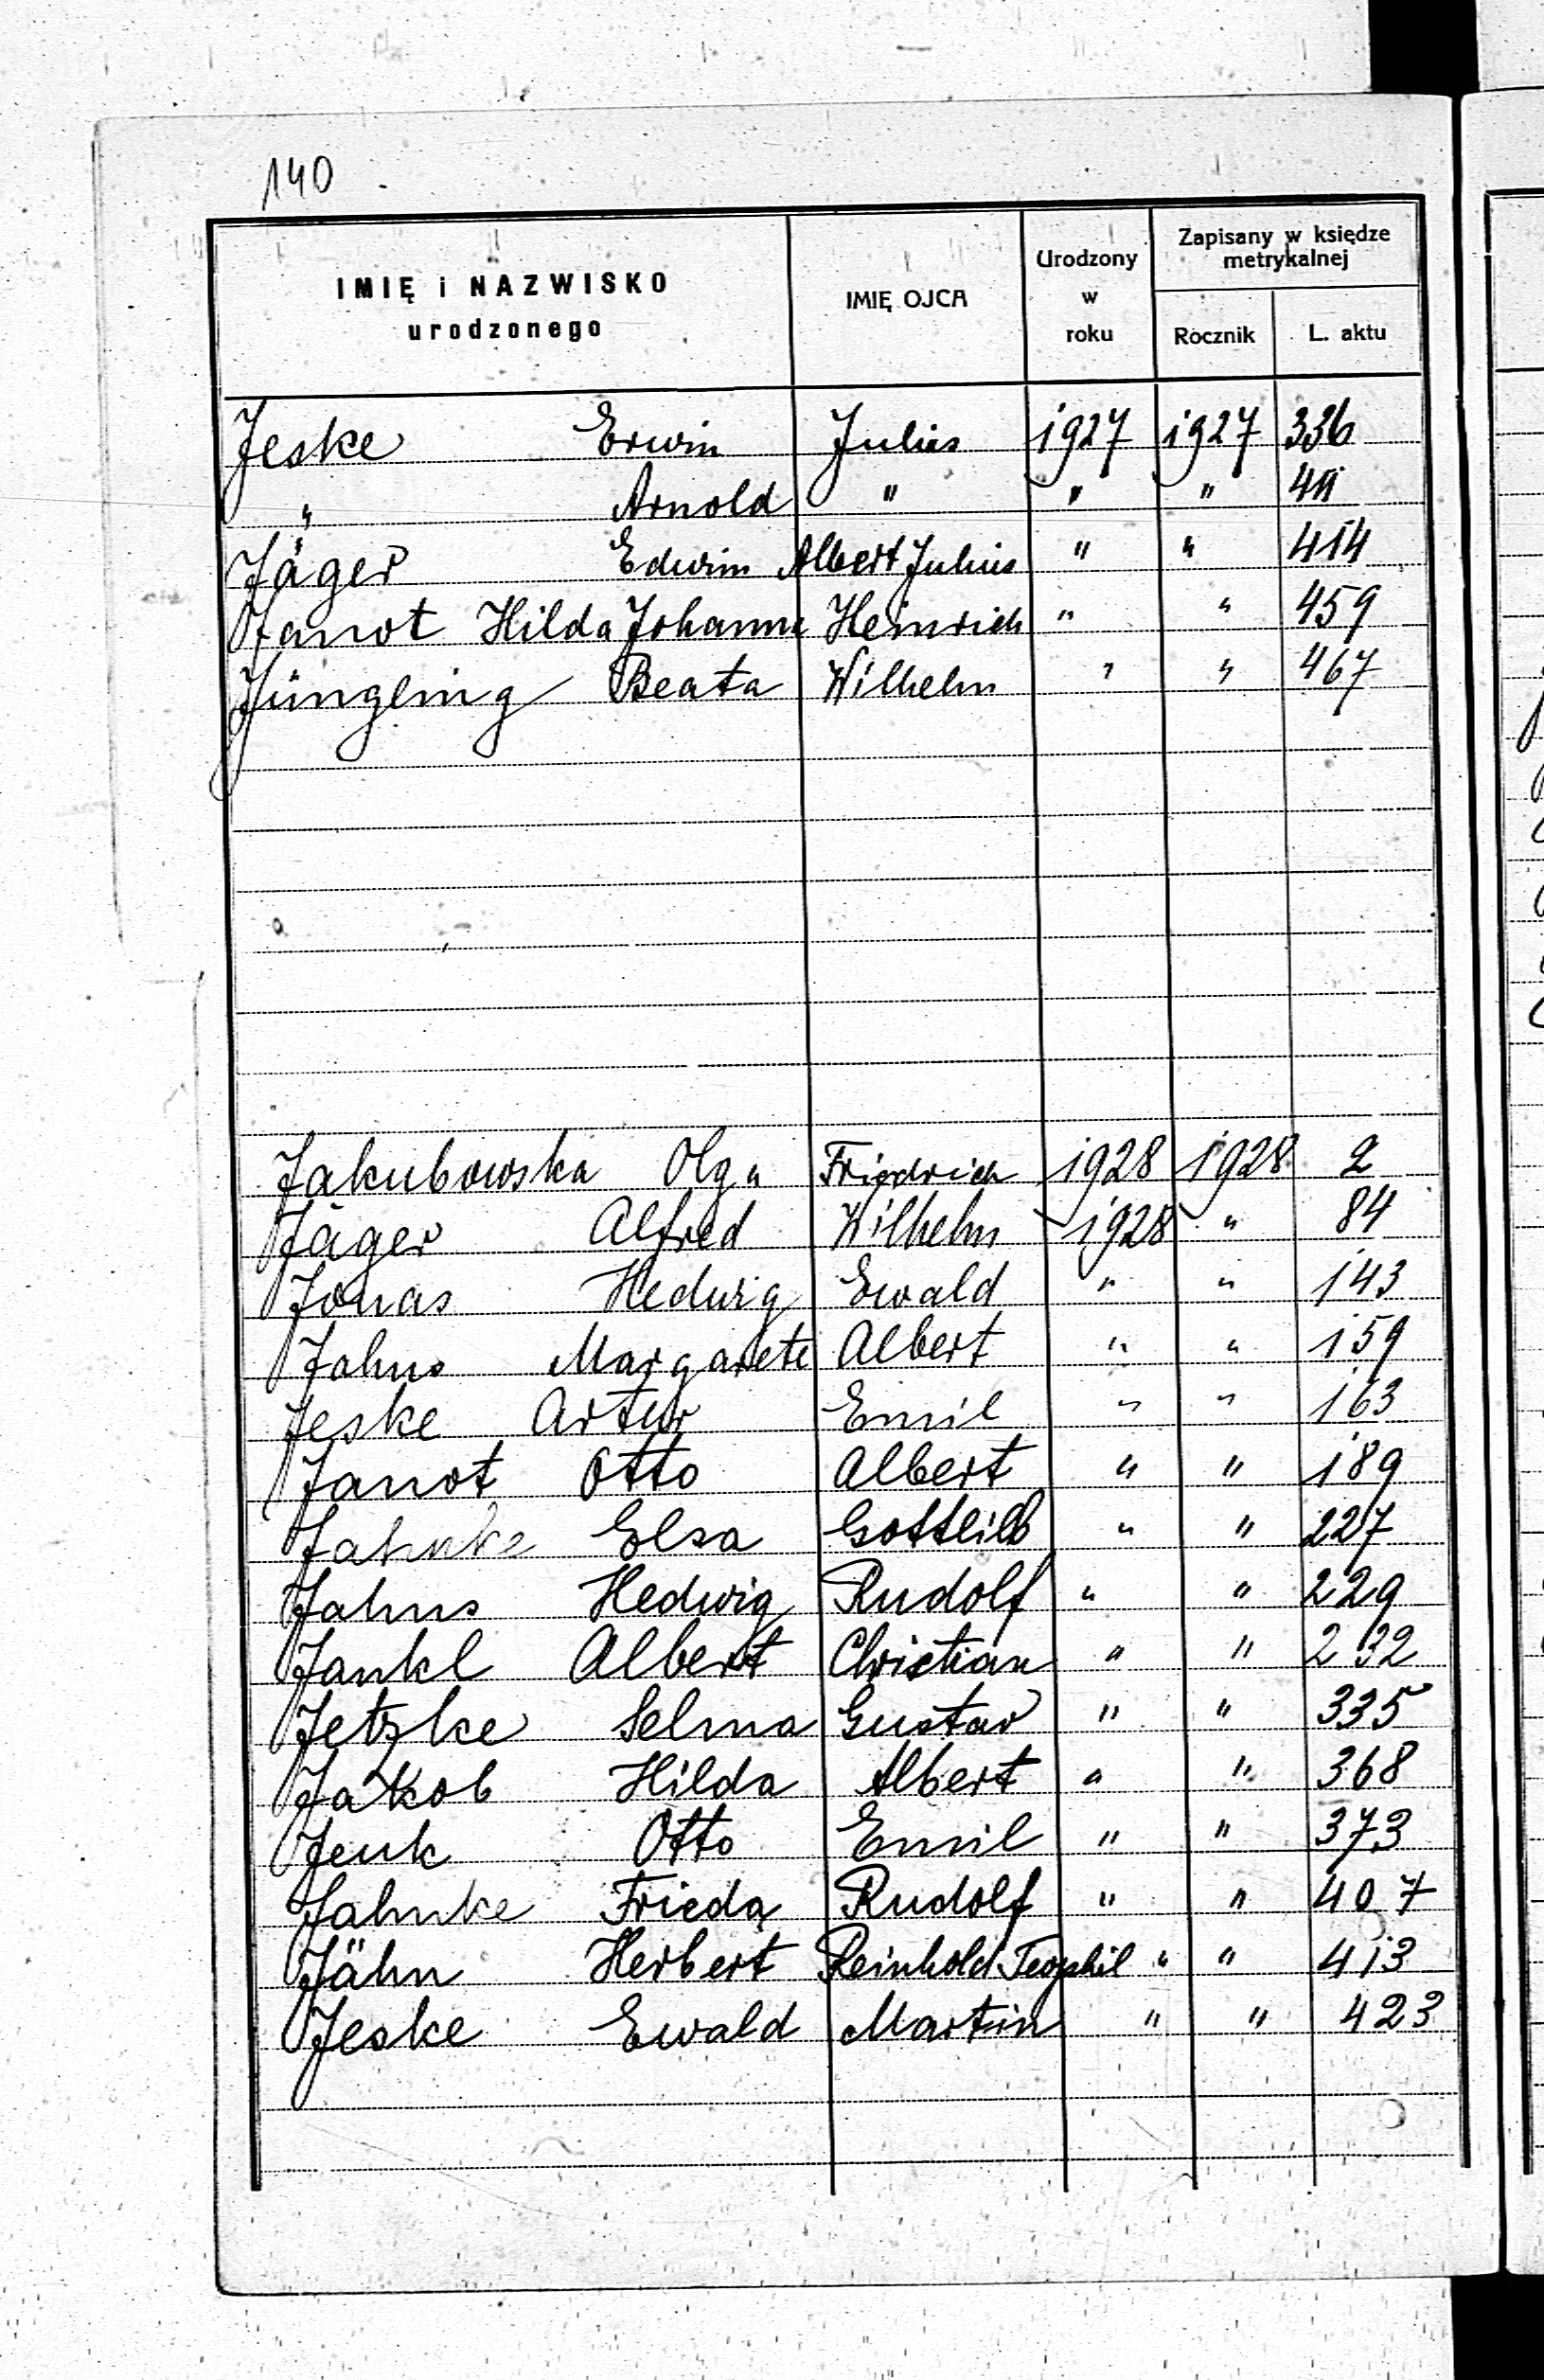 140
IMIĘ i NAZWISKO urodzonego | IMIĘ OJCA | Urodzony w roku | Zapisany w księdze metrykalnej
Rocznik | L. aktu
Jeske Erwin Julius 1927 1927 336
" Arnold " " "
Jäger Edwin Albert Julius " " 414
Janot Hilda Johanna Heinrich " " 459
Jüngling Beata Wilhelm " " 467
Jakubowska Olga Friedrich 1928 1928 2
Jäger Alfred Wilhelm 1928 " 84
Jonas Hedwig Ewald " " 143
Jahns Margarete Albert " " 159
Jeske Artur Emil " " 163
Janot Otto Albert " " 189
Jahnke Elsa Gottlieb " " 227
Jahns Hedwig Rudolf " " 229
Jankl Albert Christian " " 232
Jetzke Selma Gustav " " 335
Jakob Hilda Albert " " 368
Jenk Otto Emil " " 373
Jahnke Frieda Rudolf " " 407
Jähn Herbert Reinhold Teophil " " 413
Jeske Ewald Martin " " 423